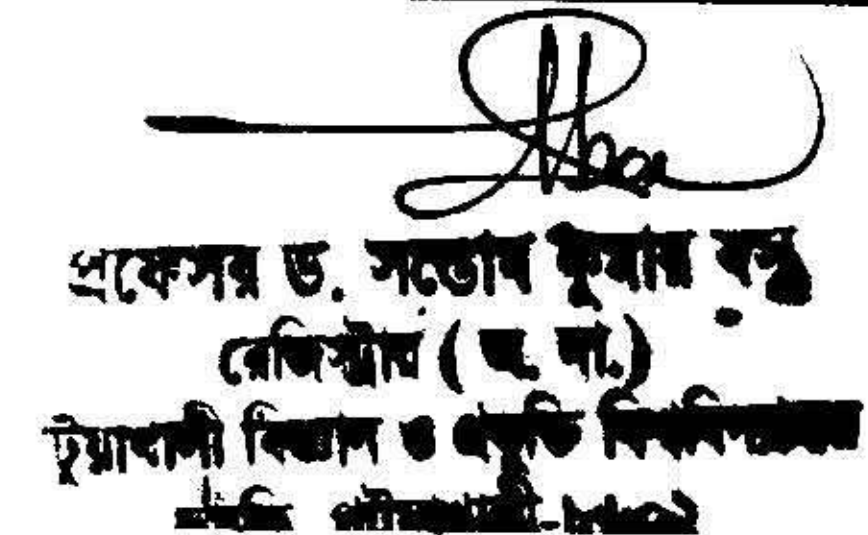 প্রফেসর ড. সন্তোষ কুমার বসু
রেজিস্ট্রার ( অ. দা.)
টুয়াখালী বিজ্ঞান ও প্রযুক্তি বিশ্ববিদ্যালয়